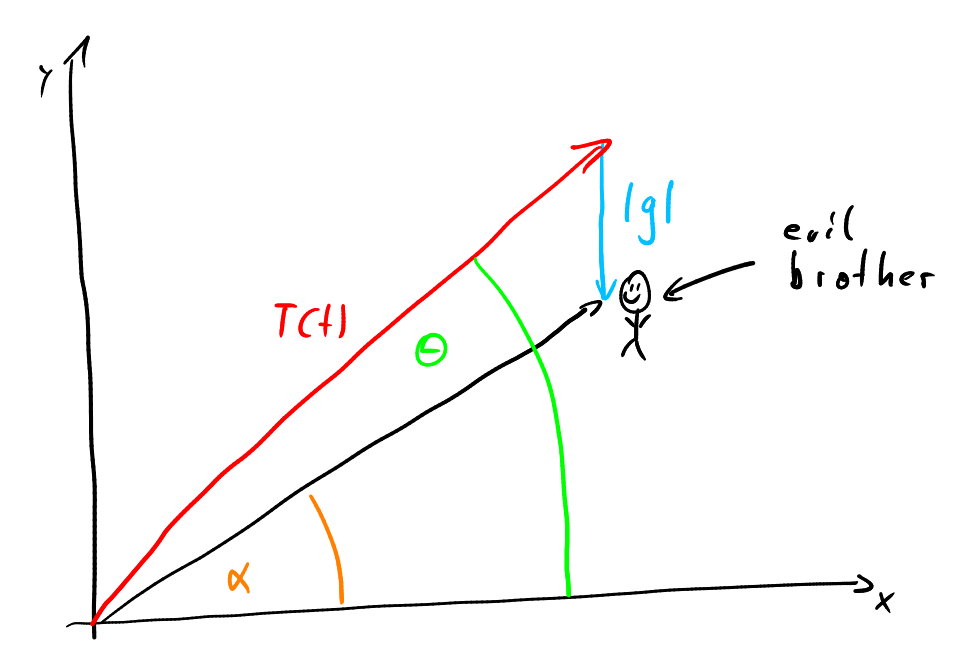 y
|g|
evil
brother
T(t)
Θ
α
x